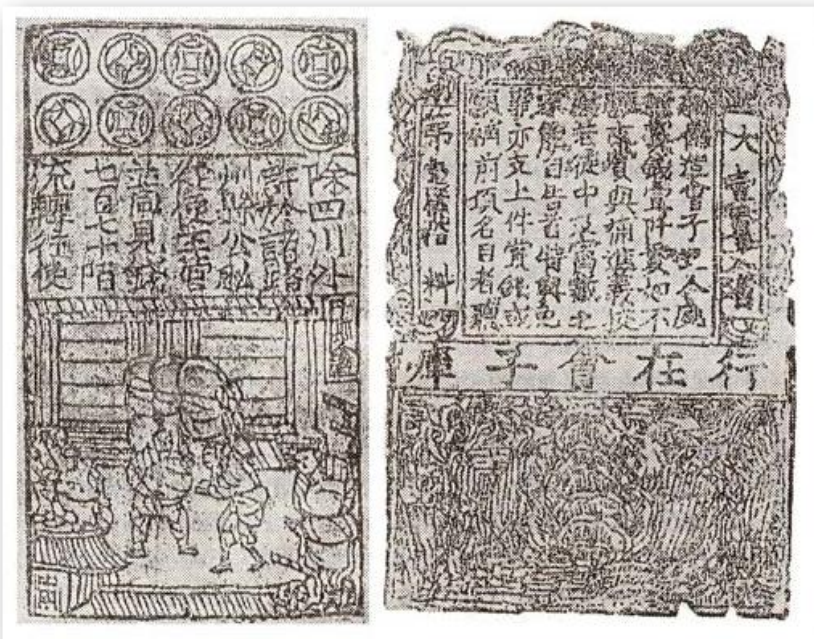 除四川外
許於諸路
州縣公私
從便主管
並同見錢
七百七十陌
流轉行使
大壹貫文省
敕偽造會子犯人處
斬賞錢壹阡貫如不
願支賞與補進義校
尉若徒中及窩藏之
家能自告首特與免
罪亦支上件賞錢或
願補前項名目者聽
第 料
行在會子庫